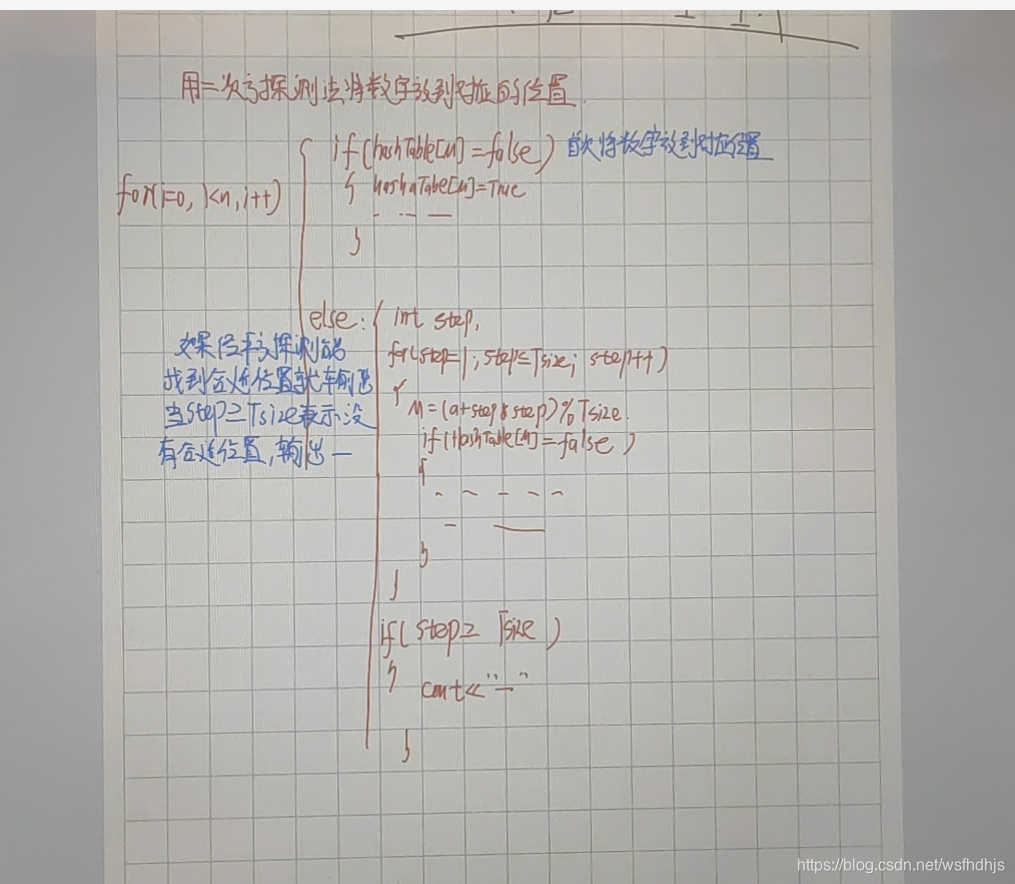 用二次方探测法将数字放到对应的位置
if(hashTable[M]=false) 首次将数字放到对应位置
for(i=0, i<n, i++)
{ hashaTabe[M]=True
}
else: { int step,
如果经平方探测能
for(step=1; step≤Tsize; step++)
找到合适位置就输出
{ M=(a+step*step)%Tsize.
当step≥Tsize表示没
if(HashTable[M]=false)
有合适位置,输出一
{
}
}
if( step≥ Tsize )
{ cout<<"—"
}
https://blog.csdn.net/wsfhdhjs